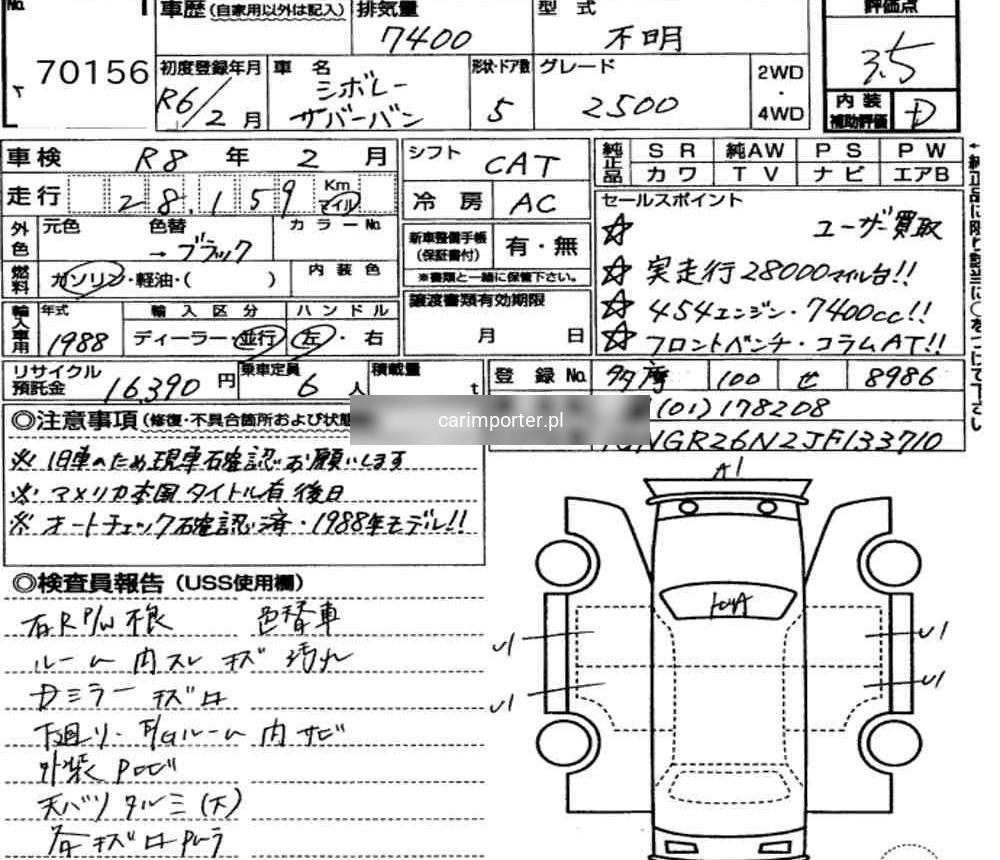 No. 70156
車歴(自家用以外は記入) 排気量 7400 型式 不明 評価点 3.5
初度登録年月 R6/2月 車名 シボレー サバーバン 形状・ドア数 5 グレード 2500 2WD・4WD 内装補助評価 D
車検 R8年2月 シフト CAT 純正品 SR 純AW PS PW
カワ TV ナビ エアB
走行 28,159 Km マイル 冷房 AC
セールスポイント
外色 元色 色替 →ブラック カラーNo. 新車整備手帳(保証書付) 有・無
☆ ユーザー買取
燃料 ガソリン・軽油・( ) 内装色 ※書類と一緒に保管下さい。
☆ 実走行28000マイル台!!
輸入車用 年式 1988 輸入区分 ディーラー・並行 ハンドル 左・右 譲渡書類有効期限 月 日
☆ 454エンジン・7400cc!!
☆ フロントベンチ・コラムAT!!
リサイクル預託金 16,390円 乗車定員 6人 積載量 t 登録No. 多摩 100 せ 8986
◎注意事項(修復・不具合箇所および状態
carimporter.pl
(01)178208
GNGR26N2JF133710
※ 旧車のため現車確認お願いします
※ アメリカ本国タイトル有 後日
※ オートチェック確認済・1988年モデル!!
◎検査員報告(USS使用欄)
右R P/W 不良 色替車
ルーム内スレ キズ 汚れ
Dミラー キズロ
下廻り・E/Gルーム内サビ
外装
天バリ タルミ(大)
各キズ
A1
U1 U1
U1 U1